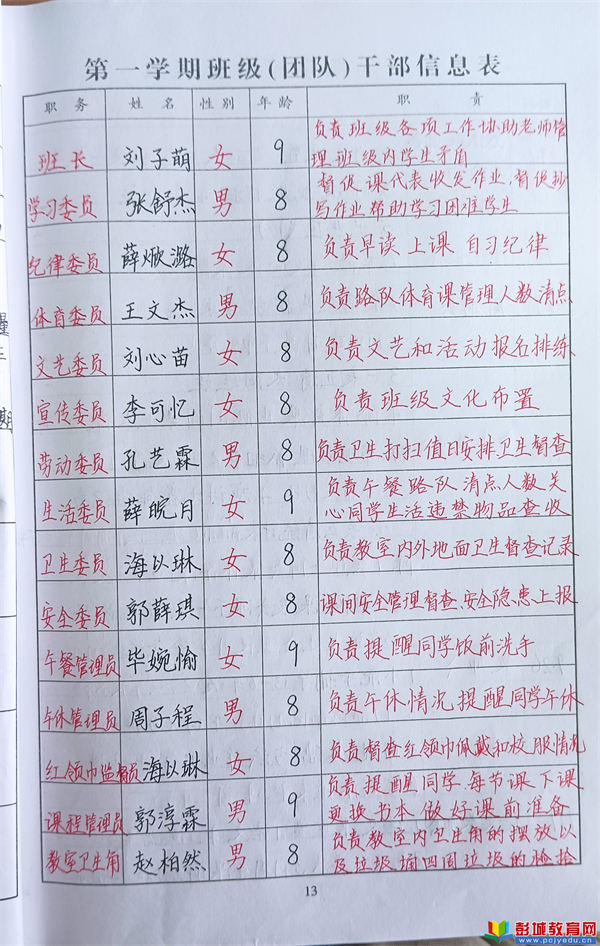 第一学期班级(团队)干部信息表
职务 姓名 性别 年龄 职责
班长 刘子萌 女 9 负责班级各项工作协助老师管
理班级内学生矛盾
学习委员 张舒杰 男 8 督促课代表收发作业,督促抄
写作业帮助学习困难学生
纪律委员 薛焮潞 女 8 负责早读 上课 自习纪律
体育委员 王文杰 男 8 负责路队体育课管理人数清点
文艺委员 刘心苗 女 8 负责文艺和活动报名排练
宣传委员 李可忆 女 8 负责班级文化布置
劳动委员 孔艺霖 男 8 负责卫生打扫值日安排卫生督查
生活委员 薛皖月 女 9 负责午餐路队清点人数关
心同学生活违禁物品查收
卫生委员 海以琳 女 8 负责教室内外地面卫生督查记录
安全委员 郭薛琪 女 8 课间安全管理督查、安全隐患上报
午餐管理员 毕婉愉 女 9 负责提醒同学饭前洗手
午休管理员 周子程 男 8 负责午休情况,提醒同学午休
红领巾监督员 海以琳 女 8 负责督查红领巾佩戴和校服情况
课程管理员 郭淳霖 男 9 负责提醒同学每节课下课
更换书本 做好课前准备
教室卫生角 赵柏然 男 8 负责教室内卫生角的摆放以
及垃圾桶四周垃圾的捡拾
13
期
彭城教育网
www.pcjyedu.com